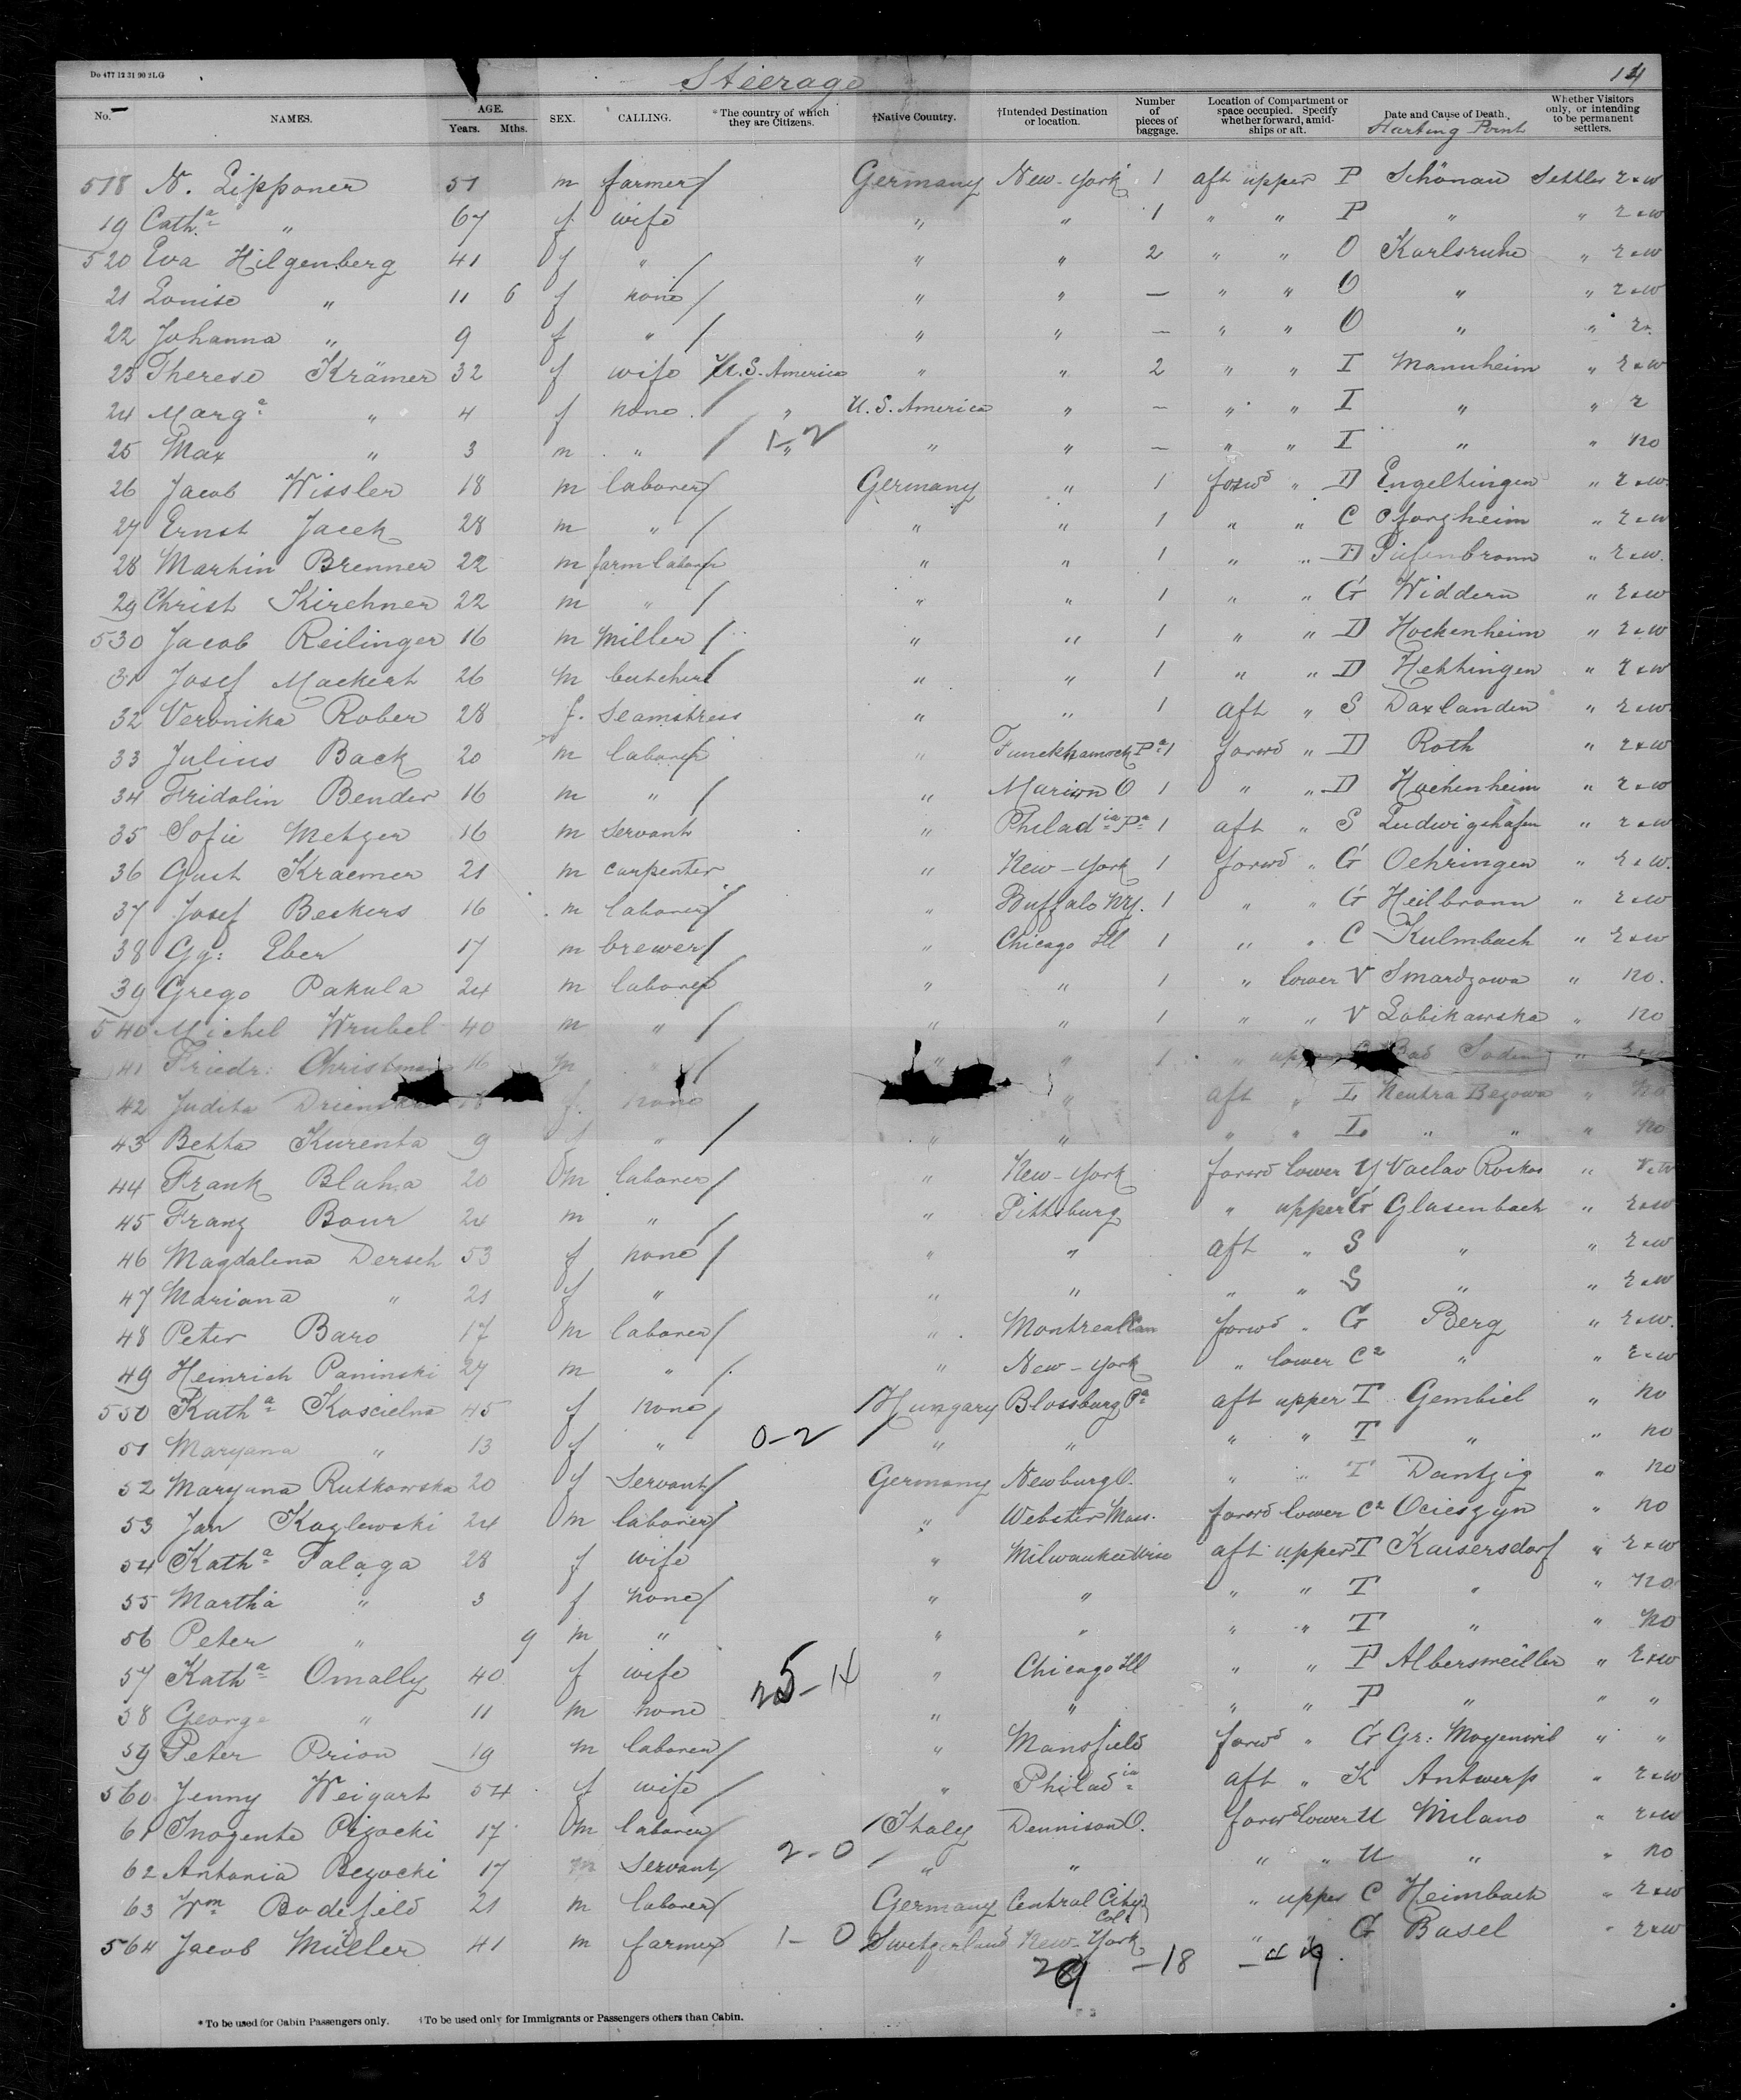 Do 477 12 31 90 2LG
Steerage
14
No. NAMES. AGE. Years. Mths. SEX. CALLING. *The country of which they are Citizens. †Native Country. †Intended Destination or location. Number of pieces of baggage. Location of Compartment or space occupied. Specify whether forward, amidships or aft. Date and Cause of Death. Starting Point Whether Visitors only, or intending to be permanent settlers.
518 N. Lipponer 51 m farmer / Germany New-York 1 aft upper P Schönau Settler r & w
19 Cath.a " 67 f wife " " 1 " " P " " r & w
520 Eva Hilgenberg 41 f " / " " 2 " " O Karlsruhe " r & w
21 Louise " 11 6 f none / " " — " " O " " r & w
22 Johanna " 9 f " / " " — " " O " " r.
23 Therese Krämer 32 f wife / U.S. America " " 2 " " I Mannheim " r & w
24 Marg.a " 4 f none / " U.S. America " — " " I " " r
25 Max " 3 m " / 1-2 " " " — " " I " " no
26 Jacob Wissler 18 m laborer / Germany " 1 forwd " D Engeltingen " r & w
27 Ernst Jacek 28 m " / " " 1 " " C Pforzheim " r & w
28 Martin Brenner 22 m farm laborer " " 1 " " D Tiefenbronn " r & w
29 Christ Kirchner 22 m " / " " 1 " " G Widdern " r & w
530 Jacob Reilinger 16 m miller / " " 1 " " D Hockenheim " r & w
31 Josef Mackert 26 m butcher / " " 1 " " D Hettingen " r & w
32 Veronika Rober 28 f. Seamstress " " 1 aft " S Daxlanden " r & w
33 Julius Back 20 m laborer / " Pa 1 forwd " D Roth " r & w
34 Fridolin Bender 16 m " / " Marion O 1 " " D Hockenheim " r & w
35 Sofie Metzger 16 m Servant " Philadia Pa 1 aft " S Ludwigshafen " r & w
36 Gust Kraemer 21 m carpenter " New-York 1 forwd " G Oehringen " r & w.
37 Josef Beckers 16 m laborer / " Buffalo NY. 1 " " G Heilbronn " r & w
38 Gg: Eber 17 m brewer / " Chicago Ill 1 " " C Kulmbach " r & w
39 Grego Pakula 24 m laborer / " " 1 " lower V Smardzowa " no.
540 Michel Wrubel 40 m " / " " 1 " " V Lobikawska " no
41 Friedr: Christman 16 m " / " " 1 " upper Bad Soden " r & w
42 Judita f. none " aft " L Neutra Bezowa " no
43 Betta Kurenta 9 f " / " " " " L " " " no
44 Frank Blaha 20 m laborer / " New-York forwd lower Y Vaclav Rockos " r & w
45 Franz Bour 24 m " / " Pittsburg " upper G Glasenbach " r & w
46 Magdalena Dersch 53 f none / " " aft " S " " r & w
47 Mariana " 21 f " " " " " S " " r & w
48 Peter Baro 17 m laborer / " Montreal Can forwd " G Berg " r & w.
49 Heinrich Paninski 27 m " / " New-York " lower C2 " " r & w
550 Katha Koscielna 45 f none / Hungary Blossburg Pa aft upper T Gembiel " no
51 Maryana " 13 f " 0-2 " " " " T " " no
52 Maryana Rutkowska 20 f Servant / Germany Newburg O. " " T Dantzig " no
53 Jan Kozlewski 24 m laborer / " Webster Mass. forwd lower C2 Ocieszyn " no
54 Katha Talaga 28 f wife " Milwaukee Wisc aft upper T Kaisersdorf " r & w
55 Martha " 3 f none / " " " " T " " no
56 Peter " 9 m " " " " " T " " no
57 Katha Omally 40 f wife 25-14 " Chicago Ill " " P Albersweiller " r & w
58 George " 11 m none " " " " P " " "
59 Peter Prion 19 m laborer / " Mansfield forwd " G Gr: Moyenvib " "
560 Jenny Weigart 54 f wife / " Philadia aft " K Antwerp " r & w
61 Inogente Pizocki 17 m laborer / Italy Dennison O. forwd lower U Milano " r & w
62 Antonia Bezocki 17 m Servant / 2-0 " " " " U " " no
63 Wm Bodefeld 21 m laborer / Germany Central City Col. " upper C Heimbach " r & w
564 Jacob Müller 41 m farmer 1-0 Switzerland New-York " " G Basel " r & w
29 -18
*To be used for Cabin Passengers only. †To be used only for Immigrants or Passengers others than Cabin.